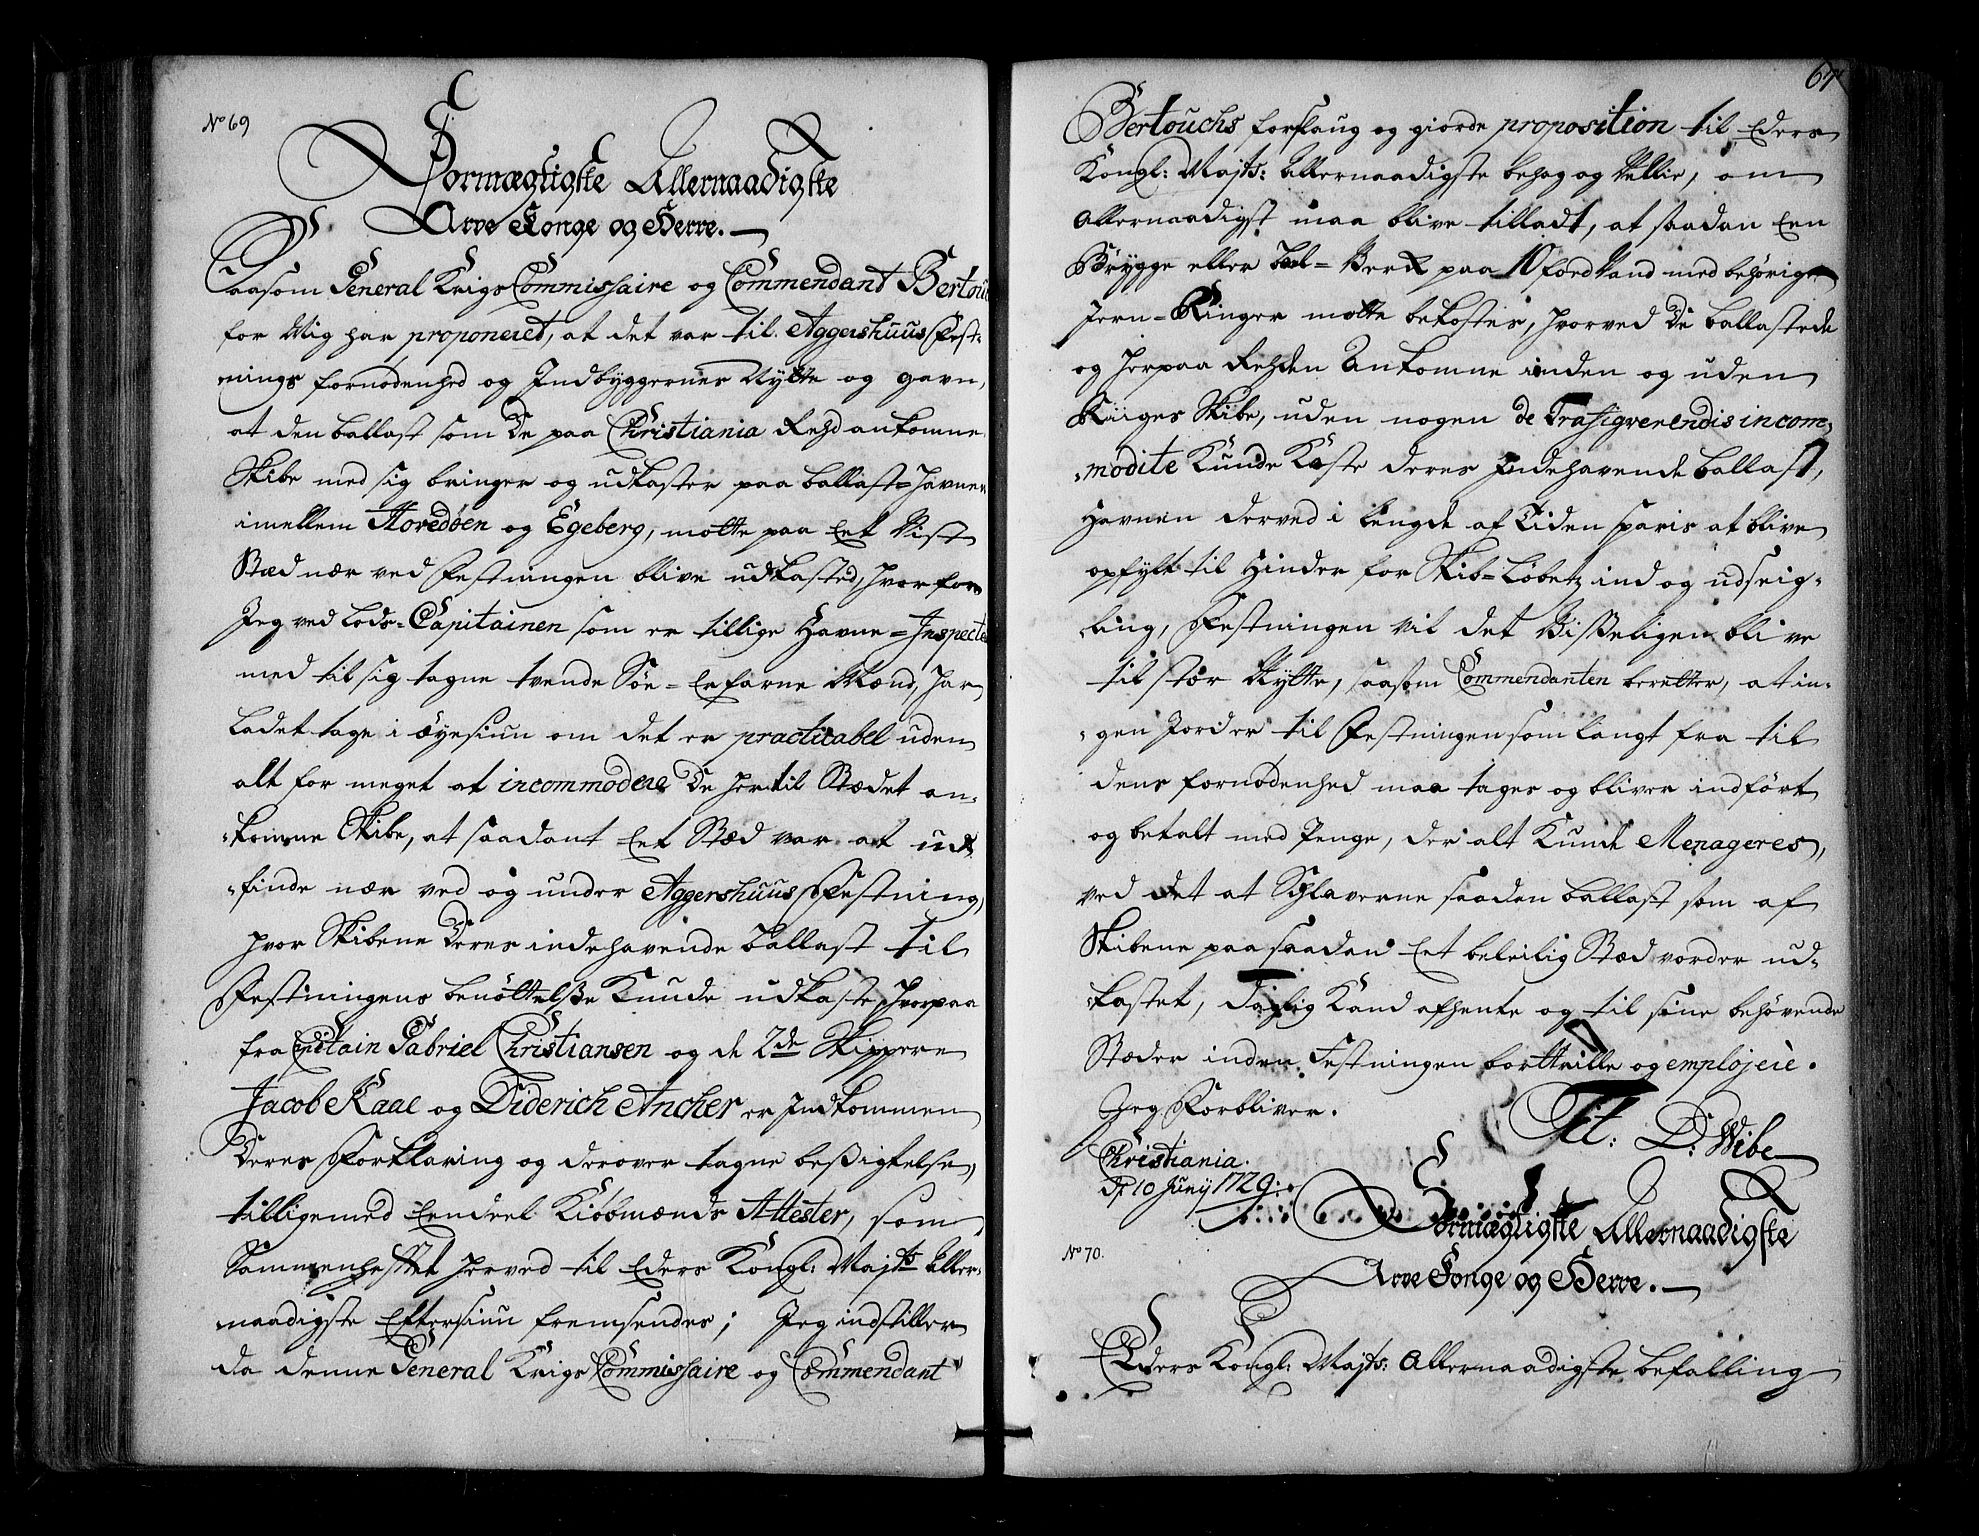 No 69
Stormægtigste Allernaadigste
Arve Konge og Herre.
Saasom General Krigs Commissaire og Commendant Bertouch
for Mig har proponeret, at det var til Aggershuus Fest-
nings fornødenhed og Indbyggernes Nytte og gavn,
at den ballast som De paa Christiania Rehd ankomne
Skibe med sig bringer og udkaster paa ballast-Havnen
imellem Hovedøen og Egeberg, motte paa Eet Vist
Stæd nær ved Festningen blive udkasted, hvorfore
Jeg ved Lods-Capitainen som er tillige Havne-Inspecteur
med til sig tagne tvende Søe-Erfarne Mænd, har
ladet tage i øyesiun om det er practicabel uden
alt for meget at incommodere De hertil Stædet an-
komne Skibe, at saadant Eet Stæd var at ud-
finde nær ved og under Aggershuus Festning,
hvor Skibene Deres indehavende ballast til
Festningens benøttelsse Kunde udkaste, Hvorpaa
fra Captain Gabriel Christiansen og de 2de Skippere
Jacob Kaae og Diderich Ancher er Indkommen
Deres Forklaring og derover tagne besigtelse,
tilligemed Eendeel Kiøbmænds Attester, som
Sammenhefftet herved til Eders Kongl: Majts Aller-
naadigste Eftersiun fremsendes; Jeg indstiller
da denne General Krigs Commissaire og Commendant
67
Bertouchs forslaug og giorde proposition til Eders
Kongl: Majts: Allernaadigste behag og Villie, om
Allernaadigst maa blive tilladt, at saadan Een
Brygge eller Bol-Verk paa 10 fod Vand med behørige
Jern-Ringer motte bekostes, hvorved De ballastede
og herpaa Rehden Ankomne inden og uden
Riiges Skibe, uden nogen de Trafiqverendis incom-
modite Kunde Kaste deres Indehavende ballast,
Havnen derved i Lengde af Tiden sparis at blive
opfylt til Hinder for Skib-Løbetz ind og udseig-
ling, Festningen vil det Visseligen blive
til stor Nytte, saasom Commendanten beretter, at in-
gen Jord er til Festningen som langt fra til
dens fornødenhed maa tages og bliver indført
og betalt med Penge, der alt Kunde Menageres,
ved det at Schlaverne saadan ballast som af
Skibene paa saadan Eet beleilig Stæd vorder ud-
kastet, Daglig Kand afhente og til sine behøvende
Stæder inden Festningen borttrille og emplojere.
Jeg Forbliver.
Tit: D: Wibe
Christiania.
Dn 10 Junij 1729.
No 70.
Stormægtigste Allernaadigste
Arve Konge og Herre.
Eders Kongl: Majts: Allernaadigste befalling